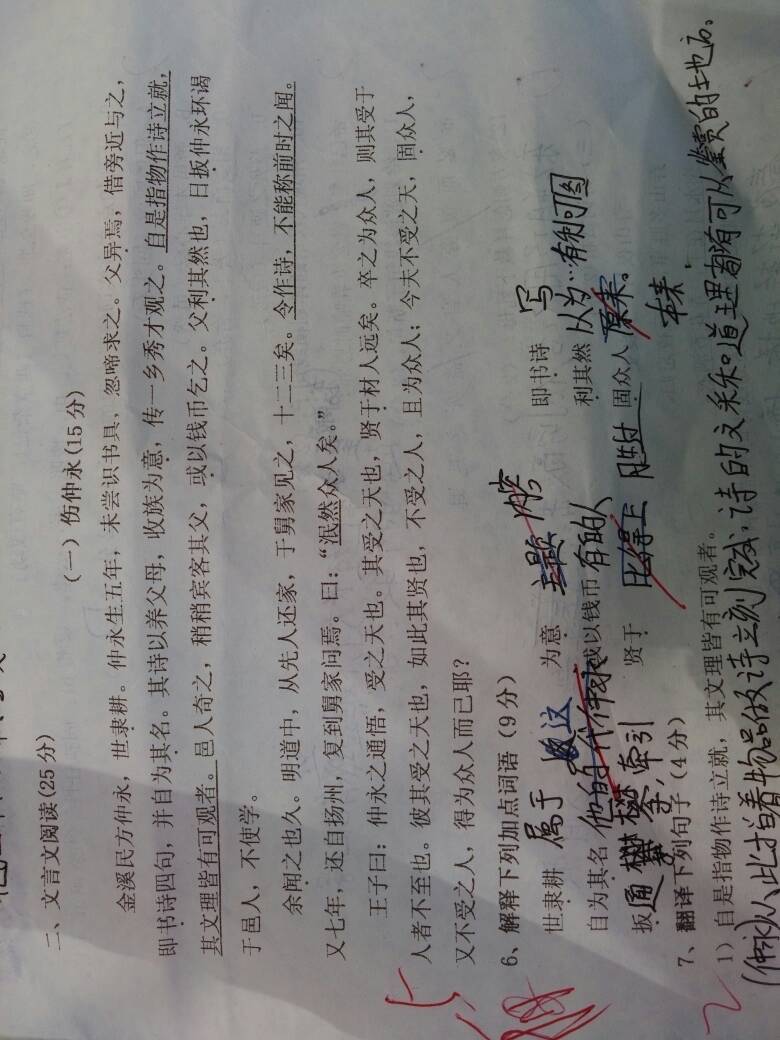 二、文言文阅读(25分)
（一）伤仲永(15分)
金溪民方仲永，世隶耕。仲永生五年，未尝识书具，忽啼求之。父异焉，借旁近与之，
即书诗四句，并自为其名。其诗以养父母，收族为意，传一乡秀才观之。自是指物作诗立就，
其文理皆有可观者。邑人奇之，稍稍宾客其父，或以钱币乞之。父利其然也，日扳仲永环谒
于邑人，不使学。
余闻之也久。明道中，从先人还家，于舅家见之，十二三矣。令作诗，不能称前时之闻。
又七年，还自扬州，复到舅家问焉。曰：“泯然众人矣。”
王子曰：仲永之通悟，受之天也。其受之天也，贤于材人远矣。卒之为众人，则其受于
人者不至也。彼其受之天也，如此其贤也，不受之人，且为众人；今夫不受之天，固众人，
又不受之人，得为众人而已耶？
6、解释下列加点词语（9分）
世隶耕 属于 为意 主题 内容 即书诗 写
自为其名 他的 代仲永 这 或以钱币 有的人 利其然 以为…有利可图
扳 通攀，牵引 贤于 比得上 胜过 固众人 原来。 本来，
7、翻译下列句子（4分）
1）自是指物作诗立就，其文理皆有可观者。
(仲永)从此指着物品做诗立刻完成，诗的文采和道理都有可以鉴赏的地方。